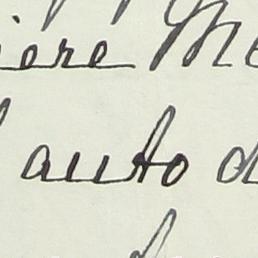 iere Me
auto d